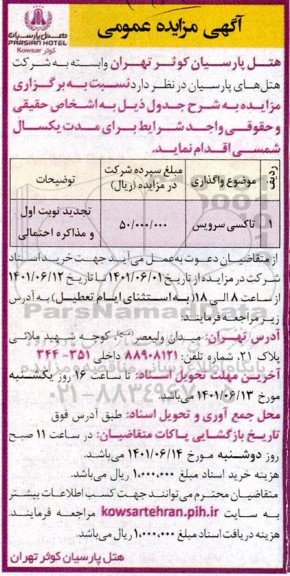 آگهی مزایده عمومی
هتل پارسیان
PARSIAN HOTEL
Kowsar کوثر
هتل پارسیان کوثر تهران وابسته به شرکت
هتل‌های پارسیان در نظر دارد نسبت به برگزاری
مزایده به شرح جدول ذیل به اشخاص حقیقی
و حقوقی واجد شرایط برای مدت یکسال
شمسی اقدام نماید.
ردیف موضوع واگذاری مبلغ سپرده شرکت در مزایده (ریال) توضیحات
۱ تاکسی سرویس ۵۰/۰۰۰/۰۰۰ تجدید نوبت اول و مذاکره احتمالی
از متقاضیان دعوت به عمل می آید جهت خرید اسناد
شرکت در مزایده از تاریخ ۱۴۰۱/۰۶/۰۱ تا تاریخ ۱۴۰۱/۰۶/۱۲
از ساعت ۸ الی ۱۸ (به استثنای ایام تعطیل) به آدرس
زیر مراجعه فرمایند:
آدرس تهران: میدان ولیعصر (عج) کوچه شهید ملائی
پلاک ۲۱، شماره تلفن: ۸۸۹۰۸۱۲۱ داخلی ۳۵۱- ۳۴۴
آخرین مهلت تحویل اسناد: تا ساعت ۱۶ روز یکشنبه
مورخ ۱۴۰۱/۰۶/۱۳ می‌باشد.
محل جمع آوری و تحویل اسناد: طبق آدرس فوق
تاریخ بازگشایی پاکات متقاضیان: در ساعت ۱۱ صبح
روز دوشنبه مورخ ۱۴۰۱/۰۶/۱۴ می‌باشد.
هزینه خرید اسناد مبلغ ۱،۰۰۰،۰۰۰ ریال می‌باشد.
متقاضیان محترم می‌توانند جهت کسب اطلاعات بیشتر
به سایت kowsartehran.pih.ir مراجعه فرمایند.
هزینه دریافت اسناد مبلغ ۱،۰۰۰،۰۰۰ ریال می‌باشد.
هتل پارسیان کوثر تهران